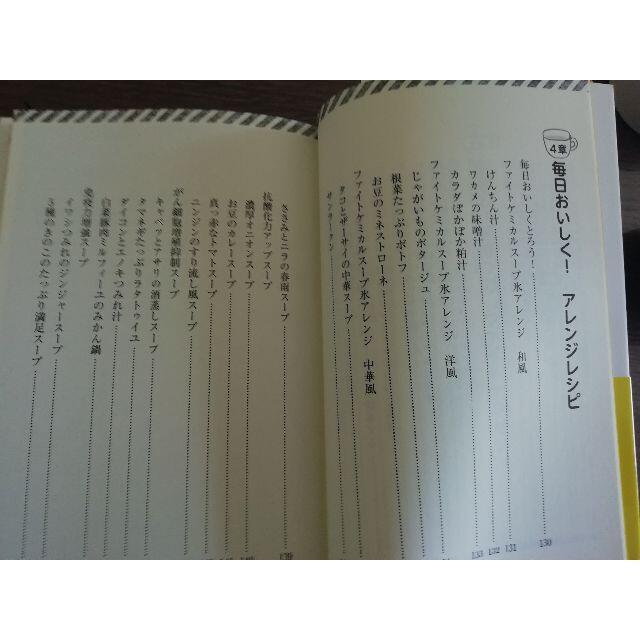 4章
毎日おいしく! アレンジレシピ
毎日おいしくとろう! 130
ファイトケミカルスープ氷アレンジ 和風
けんちん汁 131
ワカメの味噌汁 132
カラダぽかぽか粕汁 133
ファイトケミカルスープ氷アレンジ 洋風
じゃがいものポタージュ
根菜たっぷりポトフ
お豆のミネストローネ
ファイトケミカルスープ氷アレンジ 中華風
タコとザーサイの中華スープ
サンラータン
ささみとニラの春雨スープ 139
抗酸化力アップスープ
濃厚オニオンスープ
お豆のカレースープ
真っ赤なトマトスープ
ニンジンのすり流し風スープ
がん細胞増殖抑制スープ
キャベツとアサリの酒蒸しスープ
タマネギたっぷりラタトゥイユ
ダイコンとエノキつみれ汁
白菜豚肉ミルフィーユのみかん鍋
免疫力増強スープ
イワシつみれのジンジャースープ
3種のきのこのたっぷり満足スープ